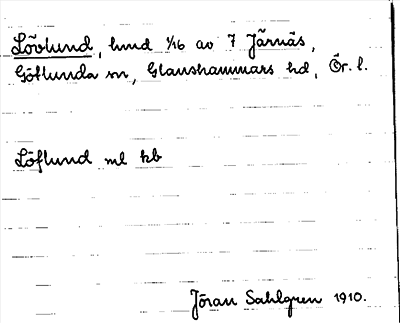 Lövlund, hmd 1/16 av 7 Järnäs,
Götlunda sn, Glanshammars hd, Ör. l.
Löflund ml kb
Jöran Sahlgren 1910.